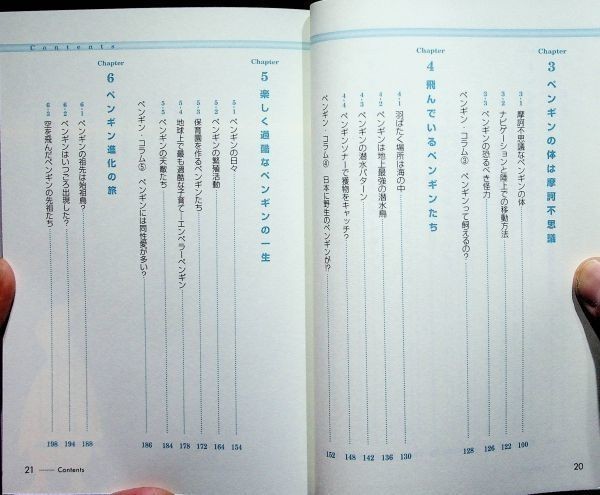 Chapter
3 ペンギンの体は摩訶不思議
3-1 摩訶不思議なペンギンの体 100
3-2 ナビゲーションと陸上での移動方法 122
3-3 ペンギンの恐るべき怪力 126
ペンギン・コラム③ ペンギンって飼えるの? 128
Chapter
4 飛んでいるペンギンたち
4-1 羽ばたく場所は海の中 130
4-2 ペンギンは地上最強の潜水鳥 136
4-3 ペンギンの潜水パターン 142
4-4 ペンギンソナーで獲物をキャッチ? 148
ペンギン・コラム④ 日本に野生のペンギンが!? 152
20
Contents
Chapter
5 楽しく過酷なペンギンの一生
5-1 ペンギンの日々 154
5-2 ペンギンの繁殖活動 164
5-3 保育園を作るペンギンたち 172
5-4 地球上で最も過酷な子育て—エンペラーペンギン 178
5-5 ペンギンの天敵たち 184
ペンギン・コラム⑤ ペンギンには同性愛が多い? 186
Chapter
6 ペンギン進化の旅
6-1 ペンギンの祖先は始祖鳥? 188
6-2 ペンギンはいつごろ出現した? 194
6-3 空を飛んだペンギンの先祖たち 198
21 — Contents